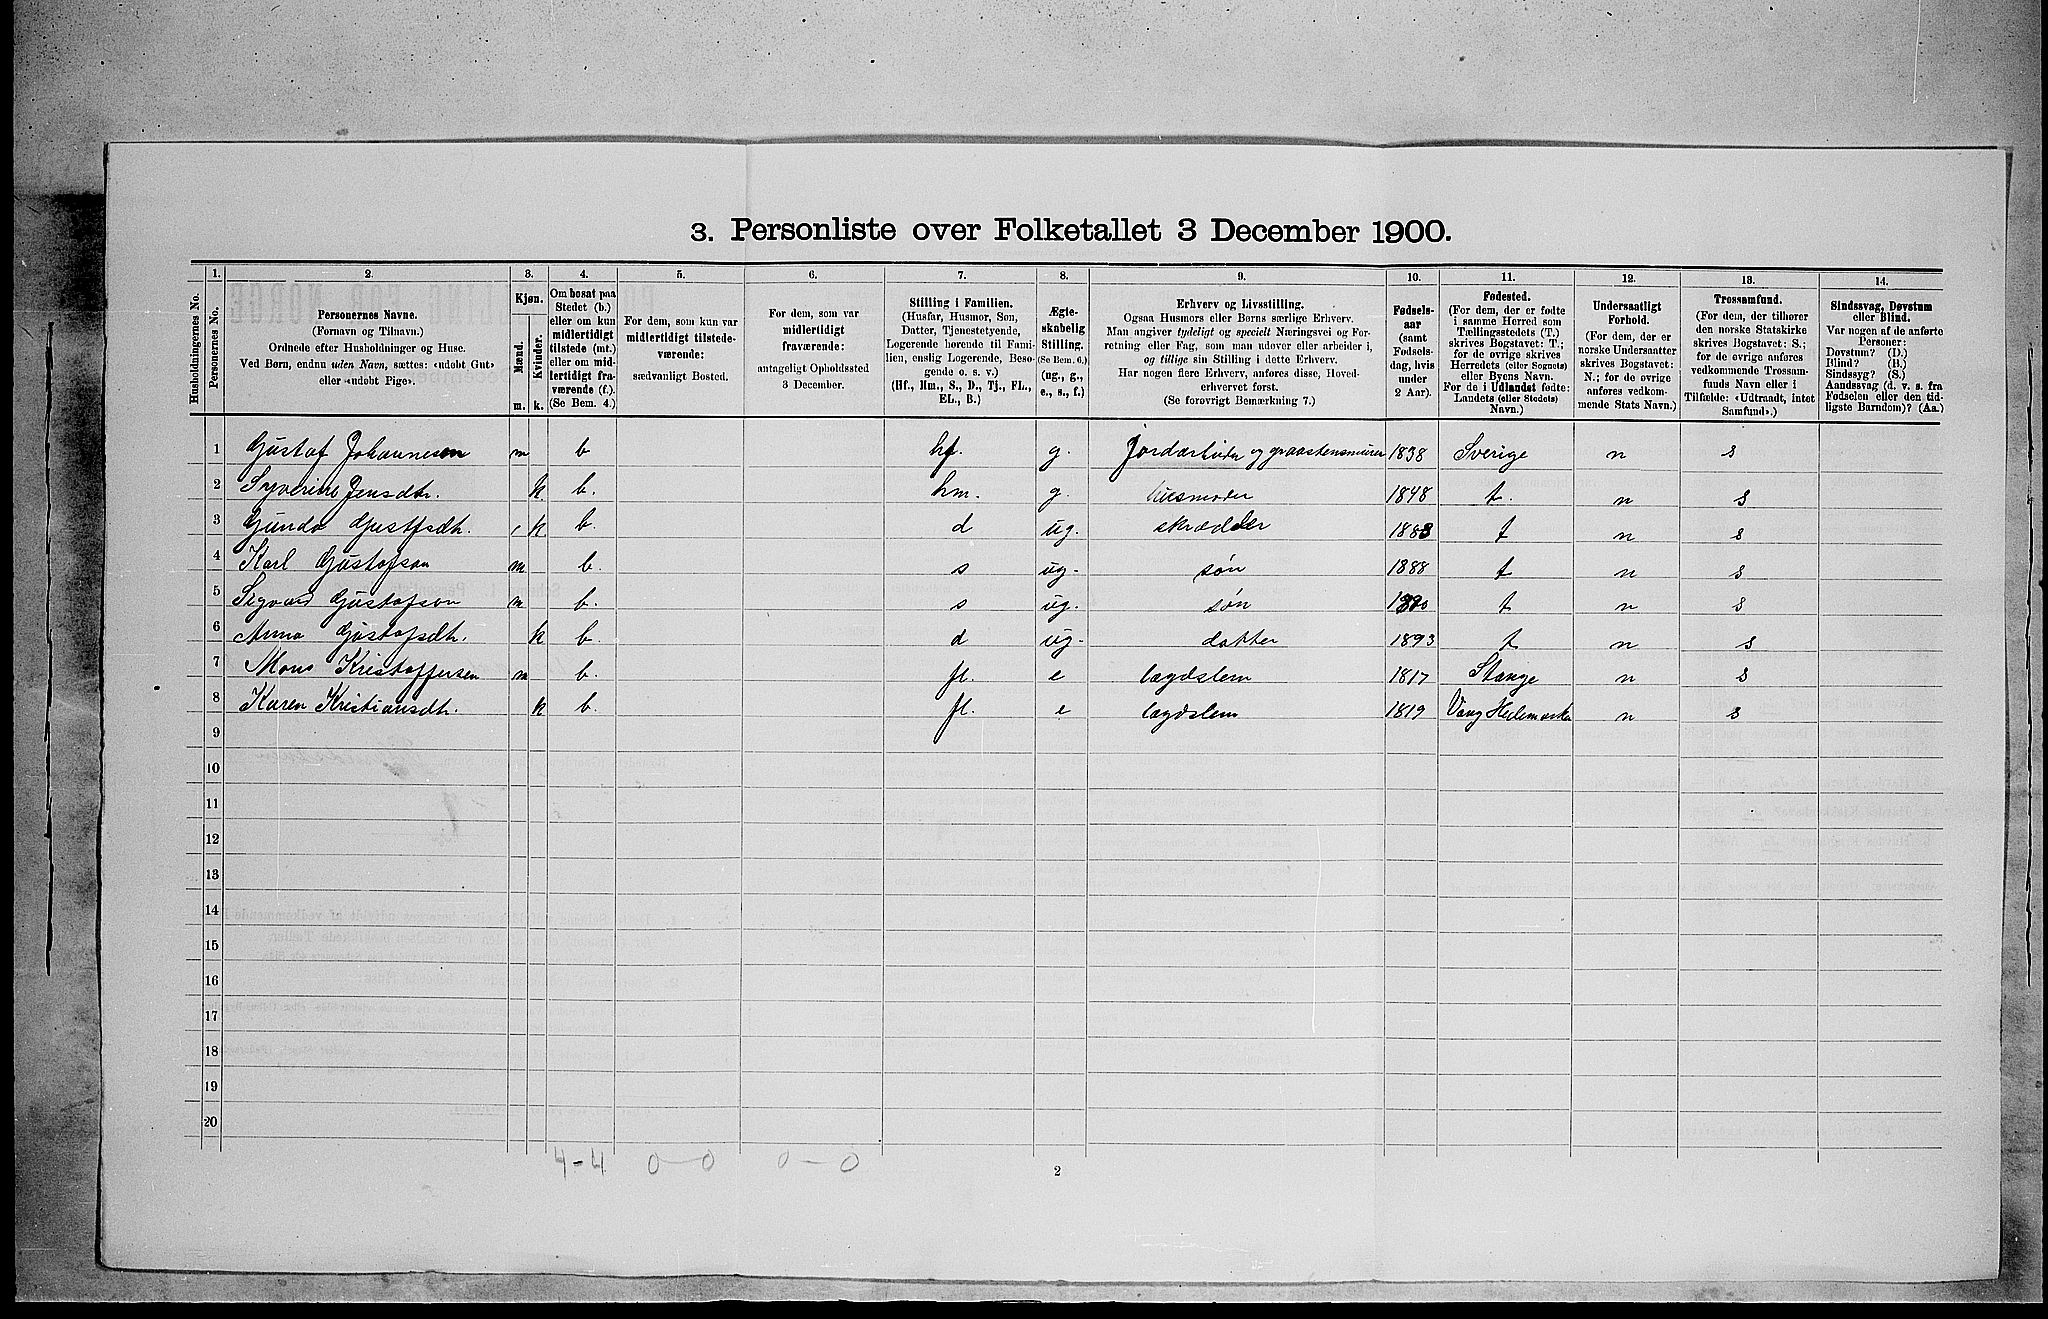 3. Personliste over Folketallet 3 December 1900.
1. 2. 3. 4. 5. 6. 7. 8. 9. 10. 11. 12. 13. 14.
Husholdningernes No.
Personernes No.
Personernes Navne.
(Fornavn og Tilnavn.)
Ordnede efter Husholdninger og Huse.
Ved Børn, endnu uden Navn, sættes: «udøbt Gut»
eller «udøbt Pige».
Kjøn.
Mænd.
Kvinder.
m. k.
Om bosat paa
Stedet (b.)
eller om kun
midlertidigt
tilstede (mt.)
eller om mid-
lertidigt fra-
værende (f.)
(Se Bem. 4.)
For dem, som kun var
midlertidigt tilstede-
værende:
sædvanligt Bosted.
For dem, som var
midlertidigt
fraværende:
antageligt Opholdssted
3 December.
Stilling i Familien.
(Husfar, Husmor, Søn,
Datter, Tjenestetyende,
Logerende hørende til Fami-
lien, enslig Logerende, Besø-
gende o. s. v.)
(Hf., Hm., S., D., Tj., FL.,
EL., B.)
Ægte-
skabelig
Stilling.
(Se Bem. 6.)
(ug., g.,
e., s., f.)
Erhverv og Livsstilling.
Ogsaa Husmors eller Børns særlige Erhverv.
Man angiver tydeligt og specielt Næringsvei og For-
retning eller Fag, som man udøver eller arbeider i,
og tillige sin Stilling i dette Erhverv.
Har nogen flere Erhverv, anføres disse, Hoved-
erhvervet først.
(Se forøvrigt Bemærkning 7.)
Fødsels-
aar
(samt
Fødsels-
dag, hvis
under
2 Aar).
Fødested.
(For dem, der er fødte
i samme Herred som
Tællingsstedets (T.)
skrives Bogstavet: T.;
for de øvrige skrives
Herredets (eller Sognets)
eller Byens Navn.
For de i Udlandet fødte:
Landets (eller Stedets)
Navn.)
Undersaatligt
Forhold.
(For dem, der er
norske Undersaatter
skrives Bogstavet:
N.; for de øvrige
anføres vedkom-
mende Stats Navn.)
Trossamfund.
(For dem, der tilhører
den norske Statskirke
skrives Bogstavet: S.;
for de øvrige anføres
vedkommende Trossam-
funds Navn eller i
Tilfælde: «Udtraadt, intet
Samfund».)
Sindssvag, Døvstum
eller Blind.
Var nogen af de anførte
Personer:
Døvstum? (D.)
Blind? (B.)
Sindssyg? (S.)
Aandssvag (d. v. s. fra
Fødselen eller den tid-
ligste Barndom)? (Aa.)
1 Gustaf Johannesen m b hf. g. jordarbeider og graastensmurer 1838 Sverige n s
2 Syverine Jensdtr. k b. hm. g. husmoder 1848 t. n s
3 Gunda Gustfsdtr. k b. d ug. skrædder 1883 t n s
4 Karl Gustafson m b. s ug. søn 1888 t n s
5 Sigvard Gustafson m b. s ug. søn t n s
6 Anna Gustafsdtr. k b. d ug. dotter 1893 t n s
7 Mons Kristoffersen m b. fl. e lægdslem 1817 Stange n s
8 Karen Kristiansdtr. k b. fl. e lægdslem 1819 Vang Hedemarken n s
9
10
11
12
13
14
15
16
17
18
19
20
4-4 0-0 0-0
2